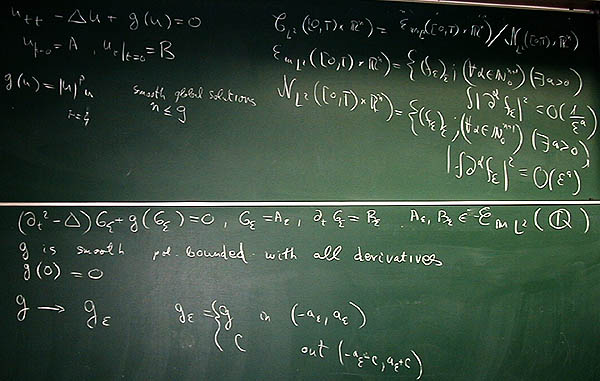 u_tt − Δu + g(u) = 0
u_{t=0} = A , u_t|_{t=0} = B
g(u) = |u|^p u
smooth global solutions
n ≤ 9
G_{L²}([0,T)×ℝⁿ) = E_{M,L²}([0,T)×ℝⁿ) / N_{L²}([0,T)×ℝⁿ)
E_{M,L²}([0,T)×ℝⁿ) = {(f_ε)_ε ; (∀α∈ℕ₀ⁿ⁺¹)(∃a>0)
∫|∂^α f_ε|² = O(1/ε^a)
N_{L²}([0,T)×ℝⁿ) = {(f_ε)_ε ; (∀α∈ℕ₀ⁿ⁺¹)(∃a>0)
|∫∂^α f_ε|² = O(ε^a)
(∂_t² − Δ) G_ε + g(G_ε) = 0 , G_ε = A_ε , ∂_t G_ε = B_ε A_ε, B_ε ∈ E_{M L²}(
g is smooth pol. bounded with all derivatives
g(0) = 0
g → g_ε g_ε = { g in (−a_ε, a_ε)
{ C out (−a_ε−c, a_ε+c)